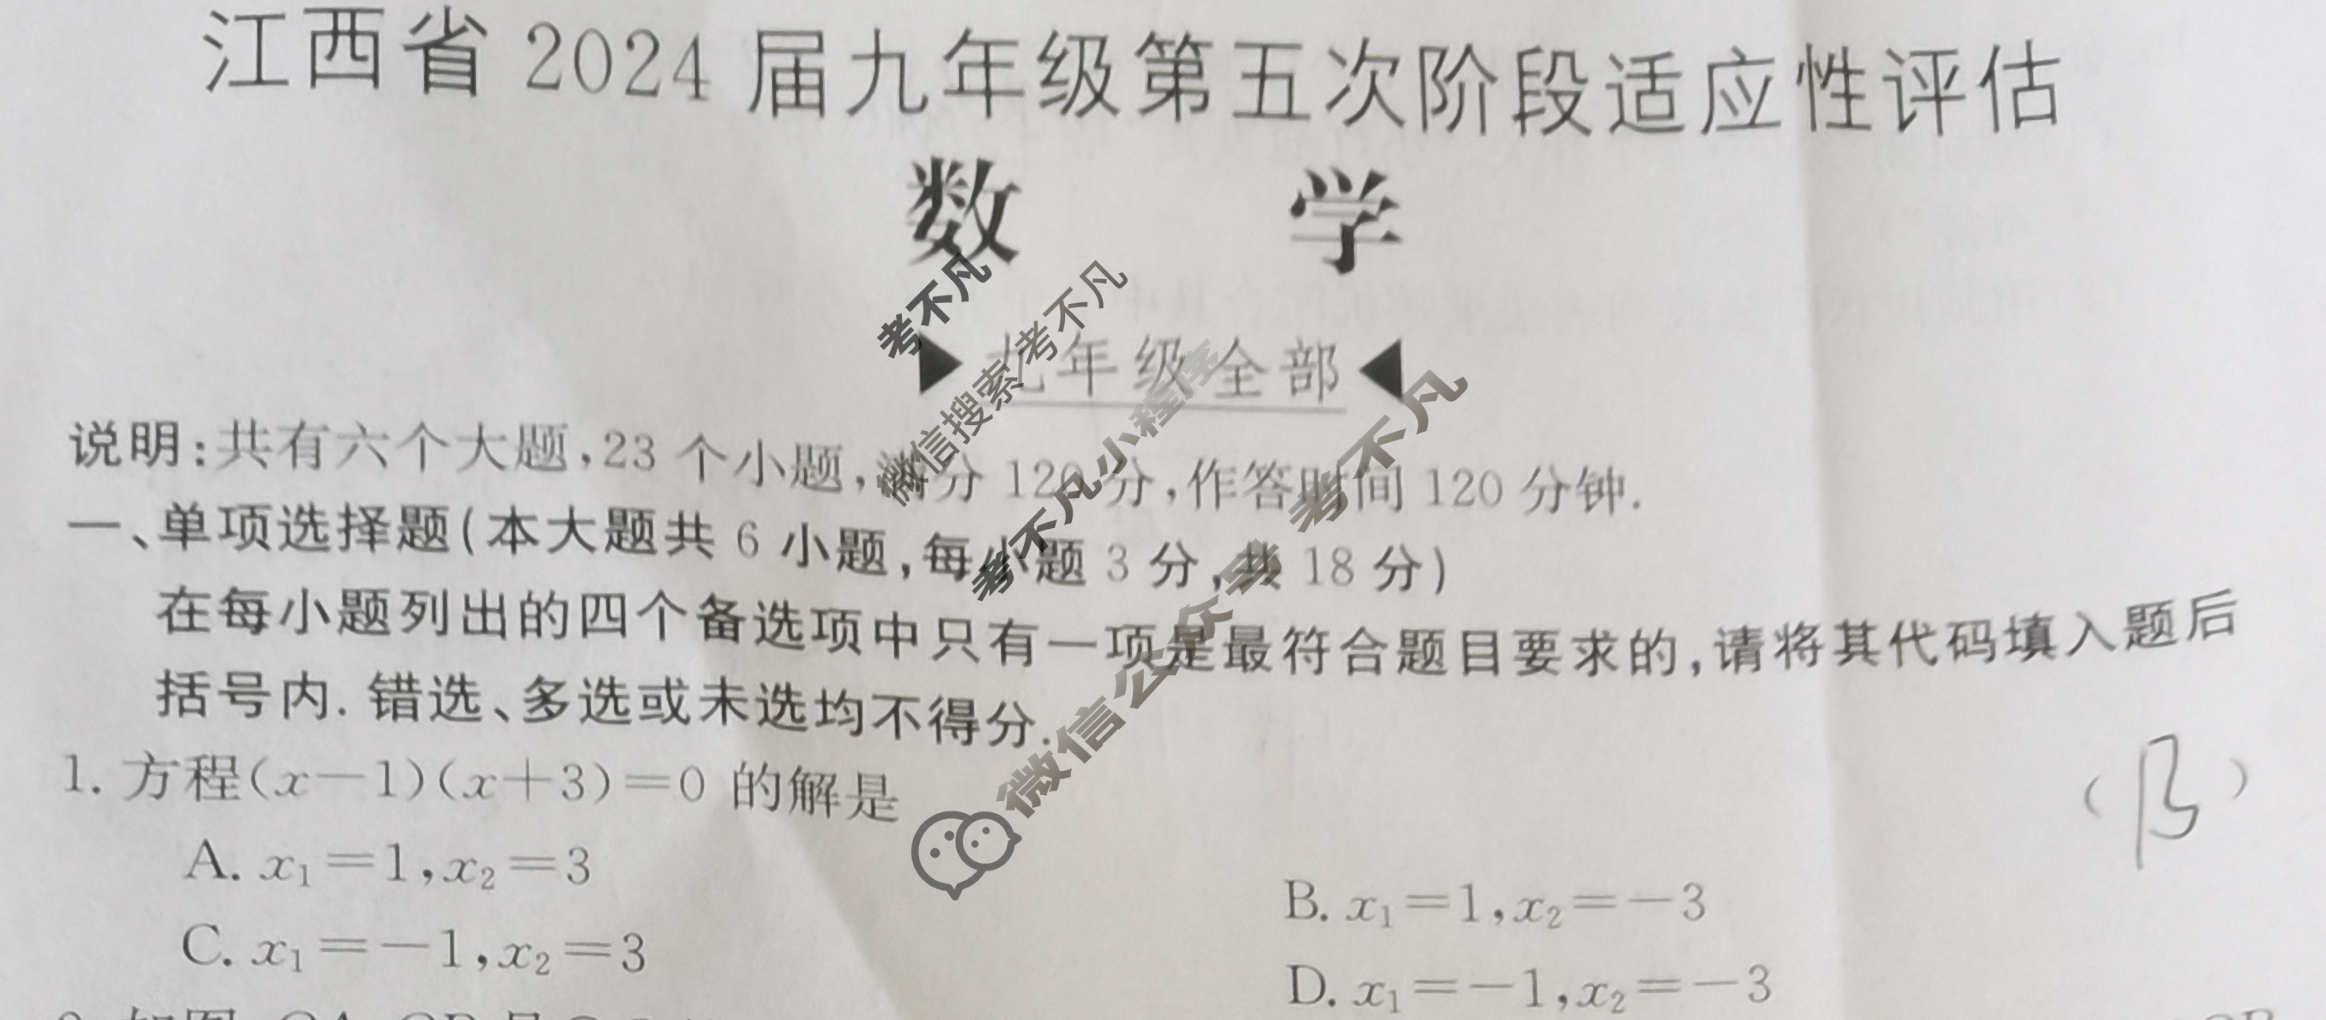 江西省 2024 届九年级第五次阶段适应性评估
数 学
▶ 九年级全部 ◀
说明:共有六个大题,23 个小题,满分 120 分,作答时间 120 分钟.
一、单项选择题(本大题共 6 小题,每小题 3 分,共 18 分)
在每小题列出的四个备选项中只有一项是最符合题目要求的,请将其代码填入题后
括号内. 错选、多选或未选均不得分.
1. 方程(x-1)(x+3)=0 的解是 ( B )
A. x₁=1,x₂=3
B. x₁=1,x₂=-3
C. x₁=-1,x₂=3
D. x₁=-1,x₂=-3
考不凡
微信搜索考不凡
考不凡小程序
微信公众号 考不凡